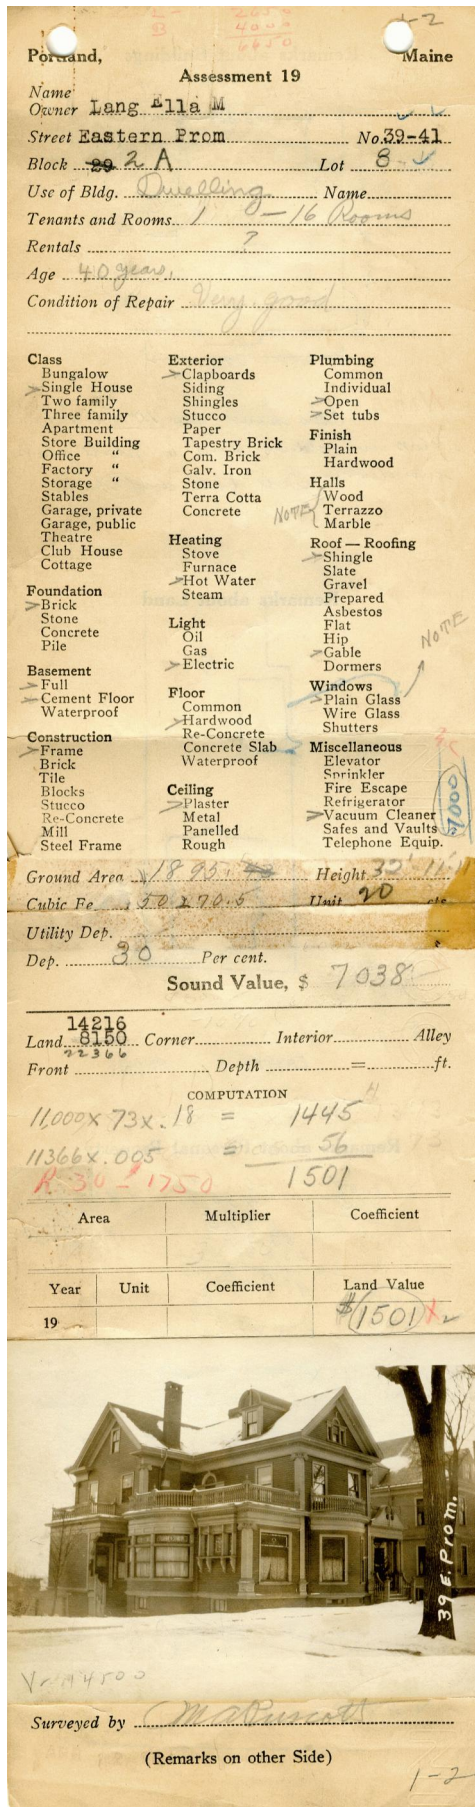 L - 2650
B 4000
6650
1-2
Portland, Maine
Assessment 19
Name
Owner Lang Ella M
Street Eastern Prom No. 39-41
Block 29 2 A Lot 8
Use of Bldg. Dwelling Name
Tenants and Rooms 1 - 16 Rooms
Rentals ?
Age 40 years.
Condition of Repair Very good
Class
Bungalow
Single House
Two family
Three family
Apartment
Store Building
Office "
Factory "
Storage "
Stables
Garage, private
Garage, public
Theatre
Club House
Cottage
Foundation
Brick
Stone
Concrete
Pile
Basement
Full
Cement Floor
Waterproof
Construction
Frame
Brick
Tile
Blocks
Stucco
Re-Concrete
Mill
Steel Frame
Exterior
Clapboards
Siding
Shingles
Stucco
Paper
Tapestry Brick
Com. Brick
Galv. Iron
Stone
Terra Cotta
Concrete
Heating
Stove
Furnace
Hot Water
Steam
Light
Oil
Gas
Electric
Floor
Common
Hardwood
Re-Concrete
Concrete Slab
Waterproof
Ceiling
Plaster
Metal
Panelled
Rough
Plumbing
Common
Individual
Open
Set tubs
Finish
Plain
Hardwood
Halls
NOTE
Wood
Terrazzo
Marble
Roof — Roofing
Shingle
Slate
Gravel
Prepared
Asbestos
Flat
Hip
Gable
Dormers
NOTE
Windows
Plain Glass
Wire Glass
Shutters
Miscellaneous
Elevator
Sprinkler
Fire Escape
Refrigerator
Vacuum Cleaner
Safes and Vaults
Telephone Equip.
4000
Ground Area 1895. Height 32'
Cubic Fe 50 x 70.5 Unit 20 cts
Utility Dep. $
Dep. 30 Per cent.
Sound Value, $ 7038
14216
Land 8150 Corner Interior Alley
22366
Front Depth = ft.
COMPUTATION
11,000 x 73 x .18 = 1445
11366 x .005 = 56
R 30 - 1750 1501
Area Multiplier Coefficient
Year Unit Coefficient Land Value
19 $ 1501
39 E. Prom.
Surveyed by
(Remarks on other Side)
1-2